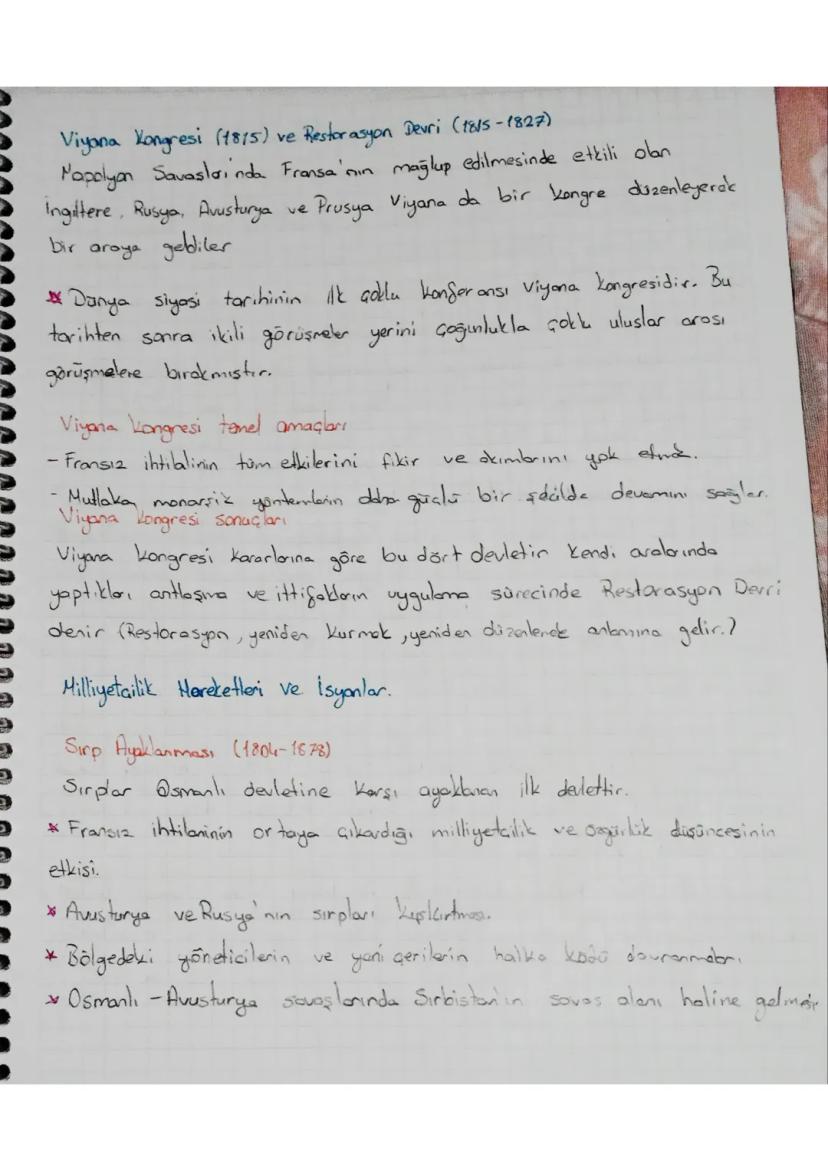 Viyana Kongresi (1815) ve Restorasyon Devri (1815-1827)
Napolyon Savasları'nda Fransa'nın mağlup edilmesinde etkili olan
İngiltere, Rusya, Avusturya ve Prusya Viyana da bir kongre düzenleyerek
bir araya geldiler
* Dünya siyasi tarihinin ilk çoklu konferansı Viyana Kongresidir. Bu
tarihten sonra ikili görüşmeler yerini çoğunlukla çoklu uluslar arası
görüşmelere bırakmıstır.
Viyana Kongresi temel amaçları
- Fransız ihtilalinin tüm etkilerini fikir ve akımlarını yok etmek.
- Mutlaka monarşik yöntemlerin daha güçlü bir şekilde devamını sağlar.
Viyana Kongresi sonuçları
Viyana kongresi kararlarına göre bu dört devletin kendi aralarında
yaptıkları antlaşma ve ittifakların uygulama sürecinde Restorasyon Devri
denir (Restorasyon, yeniden kurmak, yeniden düzenlemek anlamına gelir.)
Milliyetcilik Hareketleri ve İsyanlar.
Sırp Ayaklanması (1804-1878)
Sırplar Osmanlı devletine karşı ayaklanan ilk devlettir.
* Fransız ihtilaninin ortaya çıkardığı milliyetcilik ve özgürlük düşüncesinin
etkisi.
* Avusturya ve Rusya'nın sırpları kışkırtması.
* Bölgedeki yöneticilerin ve yeni çerilerin halka kötü davranmaları
* Osmanlı - Avusturya savaşlarında Sırbistan'ın savas alanı haline gelmesi